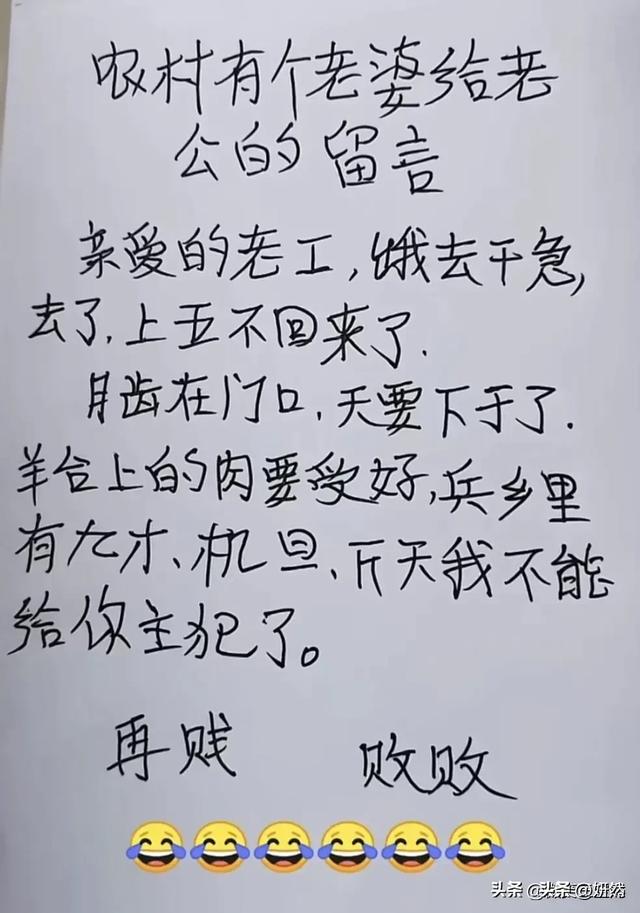 农村有个老婆给老
公的留言
亲爱的老工,饿去干急,
去了.上五不回来了.
月齿在门口,天要下于了.
羊台上的肉要受好,兵乡里
有九才、机旦、斤天我不能
给你主犯了。
再贱 败败
😂😂😂😂😂😂
头条 @妍然